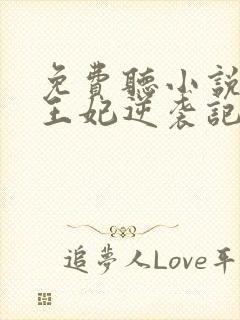 免費聽小說
王妃逆袭記
追夢人Love平